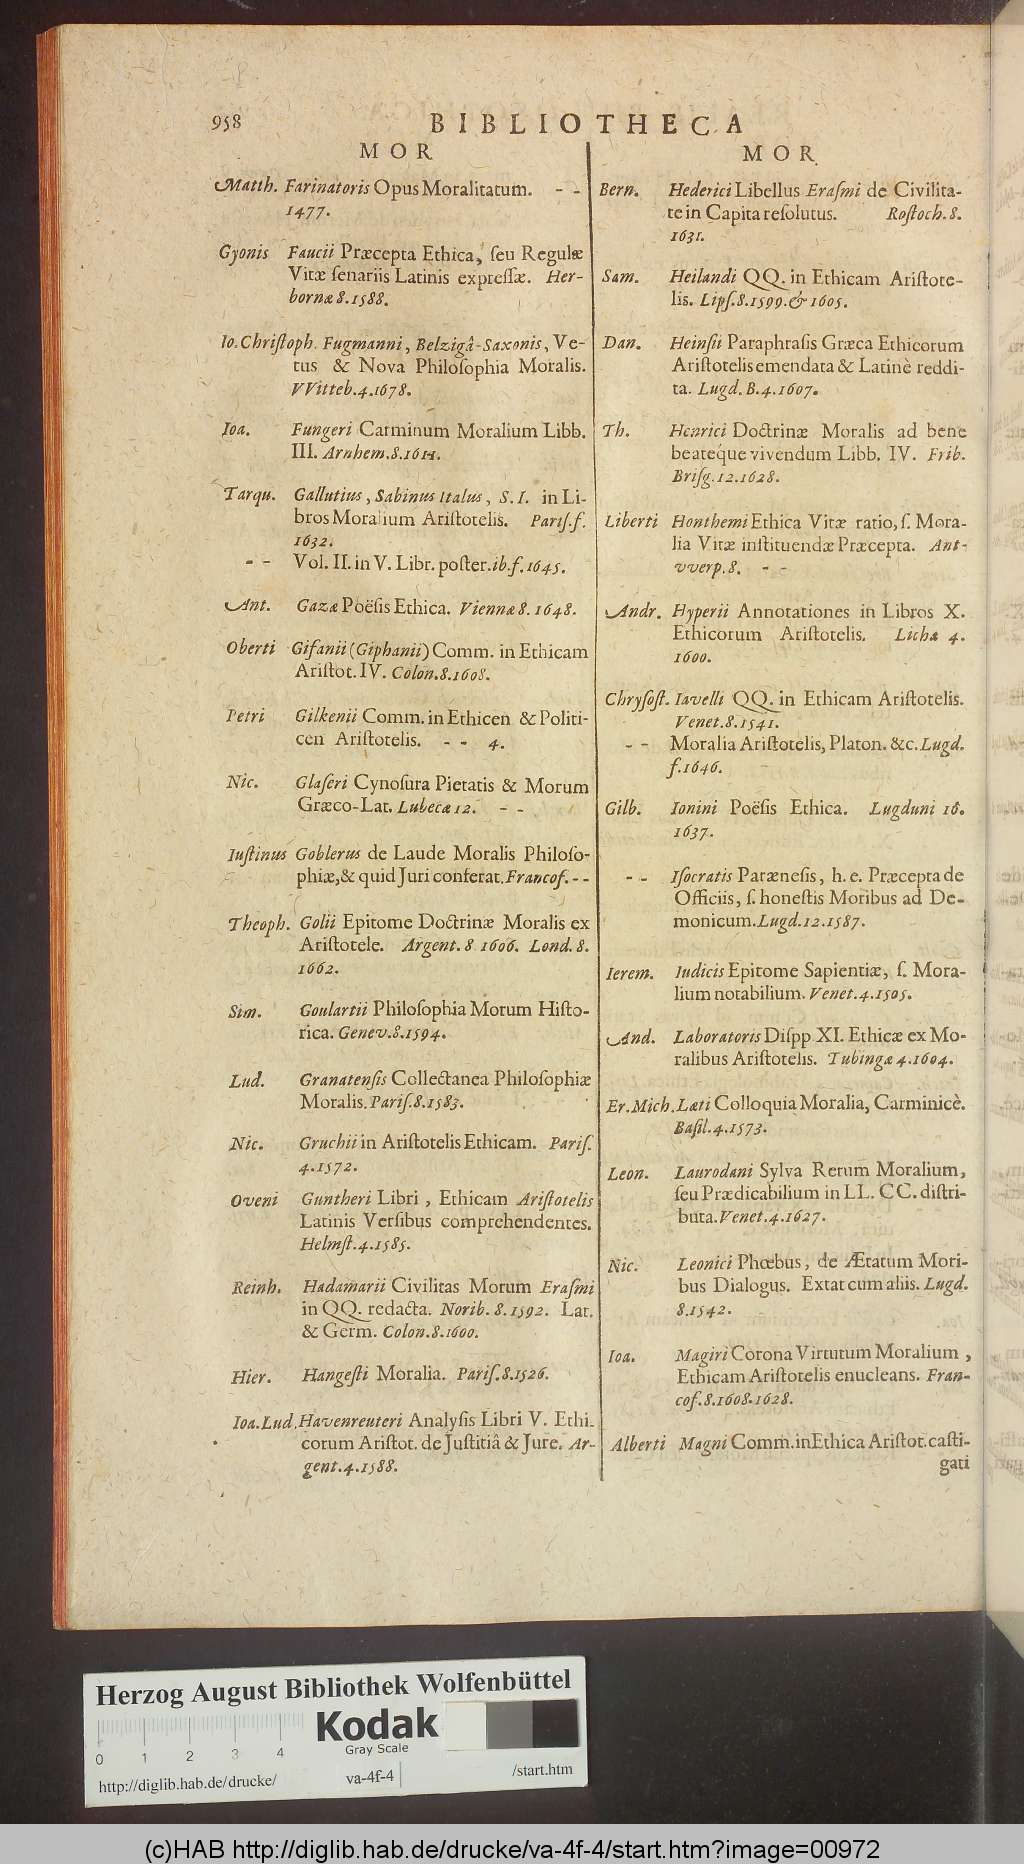 958
BIBLIOTHECA
MOR
Matth. Farinatoris Opus Moralitatum. - -
1477.
Gyonis Faucii Præcepta Ethica, ſeu Regulæ
Vitæ ſenariis Latinis expreſſæ. Her-
bornæ 8. 1588.
Io. Chriſtoph. Fugmanni, Belzigâ-Saxonis, Ve-
tus & Nova Philoſophia Moralis.
VVitteb. 4. 1678.
Ioa. Fungeri Carminum Moralium Libb.
III. Arnhem. 8.
Tarqu. Gallutius, Sabinus Italus, S. I. in Li-
bros Moralium Ariſtotelis. Pariſ. f.
1632.
- - Vol. II. in V. Libr. poſter. ib. f. 1645.
Ant. Gazæ Poëſis Ethica. Viennæ 8. 1648.
Oberti Gifanii (Giphanii) Comm. in Ethicam
Ariſtot. IV. Colon. 8. 1608.
Petri Gilkenii Comm. in Ethicen & Politi-
cen Ariſtotelis. - - 4.
Nic. Glaſeri Cynoſura Pietatis & Morum
Græco-Lat. Lubecæ 12. - -
Iuſtinus Goblerus de Laude Moralis Philoſo-
phiæ, & quid Juri conferat. Francof. - -
Theoph. Golii Epitome Doctrinæ Moralis ex
Ariſtotele. Argent. 8 1606. Lond. 8.
1662.
Sim. Goulartii Philoſophia Morum Hiſto-
rica. Genev. 8. 1594.
Lud. Granatenſis Collectanea Philoſophiæ
Moralis. Pariſ. 8. 1583.
Nic. Gruchii in Ariſtotelis Ethicam. Pariſ.
4. 1572.
Oveni Guntheri Libri, Ethicam Ariſtotelis
Latinis Verſibus comprehendentes.
Helmſt. 4. 1585.
Reinh. Hadamarii Civilitas Morum Eraſmi
in QQ. redacta. Norib. 8. 1592. Lat.
& Germ. Colon. 8. 1600.
Hier. Hangeſti Moralia. Pariſ. 8. 1526.
Ioa. Lud. Havenreuteri Analyſis Libri V. Ethi-
corum Ariſtot. de Juſtitiâ & Jure. Ar-
gent. 4. 1588.
MOR
Bern. Hederici Libellus Eraſmi de Civilita-
te in Capita reſolutus. Roſtoch. 8.
1631.
Sam. Heilandi QQ. in Ethicam Ariſtote-
lis. Lipſ. 8. 1599. & 1605.
Dan. Heinſii Paraphraſis Græca Ethicorum
Ariſtotelis emendata & Latinè reddi-
ta. Lugd. B. 4. 1607.
Th. Henrici Doctrinæ Moralis ad bene
beateque vivendum Libb. IV. Frib.
Briſg. 12. 1628.
Liberti Honthemi Ethica Vitæ ratio, ſ. Mora-
lia Vitæ inſtituendæ Præcepta. Ant-
vverp. 8. - -
Andr. Hyperii Annotationes in Libros X.
Ethicorum Ariſtotelis. Lichæ 4.
1600.
Chryſoſt. Iavelli QQ. in Ethicam Ariſtotelis.
Venet. 8. 1541.
- - Moralia Ariſtotelis, Platon. &c. Lugd.
f. 1646.
Gilb. Ionini Poëſis Ethica. Lugduni 16.
1637.
- - Iſocratis Parænesis, h. e. Præcepta de
Officiis, ſ. honeſtis Moribus ad De-
monicum. Lugd. 12. 1587.
Ierem. Iudicis Epitome Sapientiæ, ſ. Mora-
lium notabilium. Venet. 4. 1505.
And. Laboratoris Diſpp XI. Ethicæ ex Mo-
ralibus Ariſtotelis. Tubingæ 4. 1604.
Er. Mich. Læti Colloquia Moralia, Carminicè.
Baſil. 4. 1573.
Leon. Laurodani Sylva Rerum Moralium,
ſeu Prædicabilium in LL. CC. diſtri-
buta. Venet. 4. 1627.
Nic. Leonici Phœbus, de Ætatum Mori-
bus Dialogus. Extat cum aliis. Lugd.
8. 1542.
Ioa. Magiri Corona Virtutum Moralium,
Ethicam Ariſtotelis enucleans. Fran-
cof. 8. 1608. 1628.
Alberti Magni Comm. in Ethica Ariſtot. caſti-
gati
Herzog August Bibliothek Wolfenbüttel
Kodak
Gray Scale
0 1 2 3 4
http://diglib.hab.de/drucke/ va-4f-4 /start.htm
(c)HAB http://diglib.hab.de/drucke/va-4f-4/start.htm?image=00972